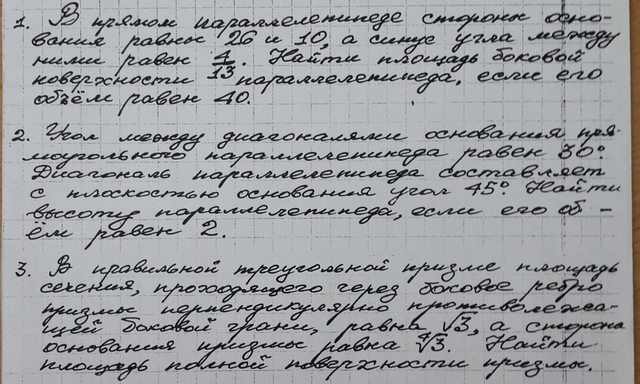 1. В прямом параллелепипеде стороны осно-
вания равны 26 и 10, а синус угла между
ними равен 4/13. Найти площадь боковой
поверхности параллелепипеда, если его
объём равен 40.
2. Угол между диагоналями основания пря-
моугольного параллелепипеда равен 30°.
Диагональ параллелепипеда составляет
с плоскостью основания угол 45°. Найти
высоту параллелепипеда, если его объ-
ём равен 2.
3. В правильной треугольной призме площадь
сечения, проходящего через боковое ребро
призмы перпендикулярно противолежа-
щей боковой грани, равна √3, а сторона
основания призмы равна ∜3. Найти
площадь полной поверхности призмы.